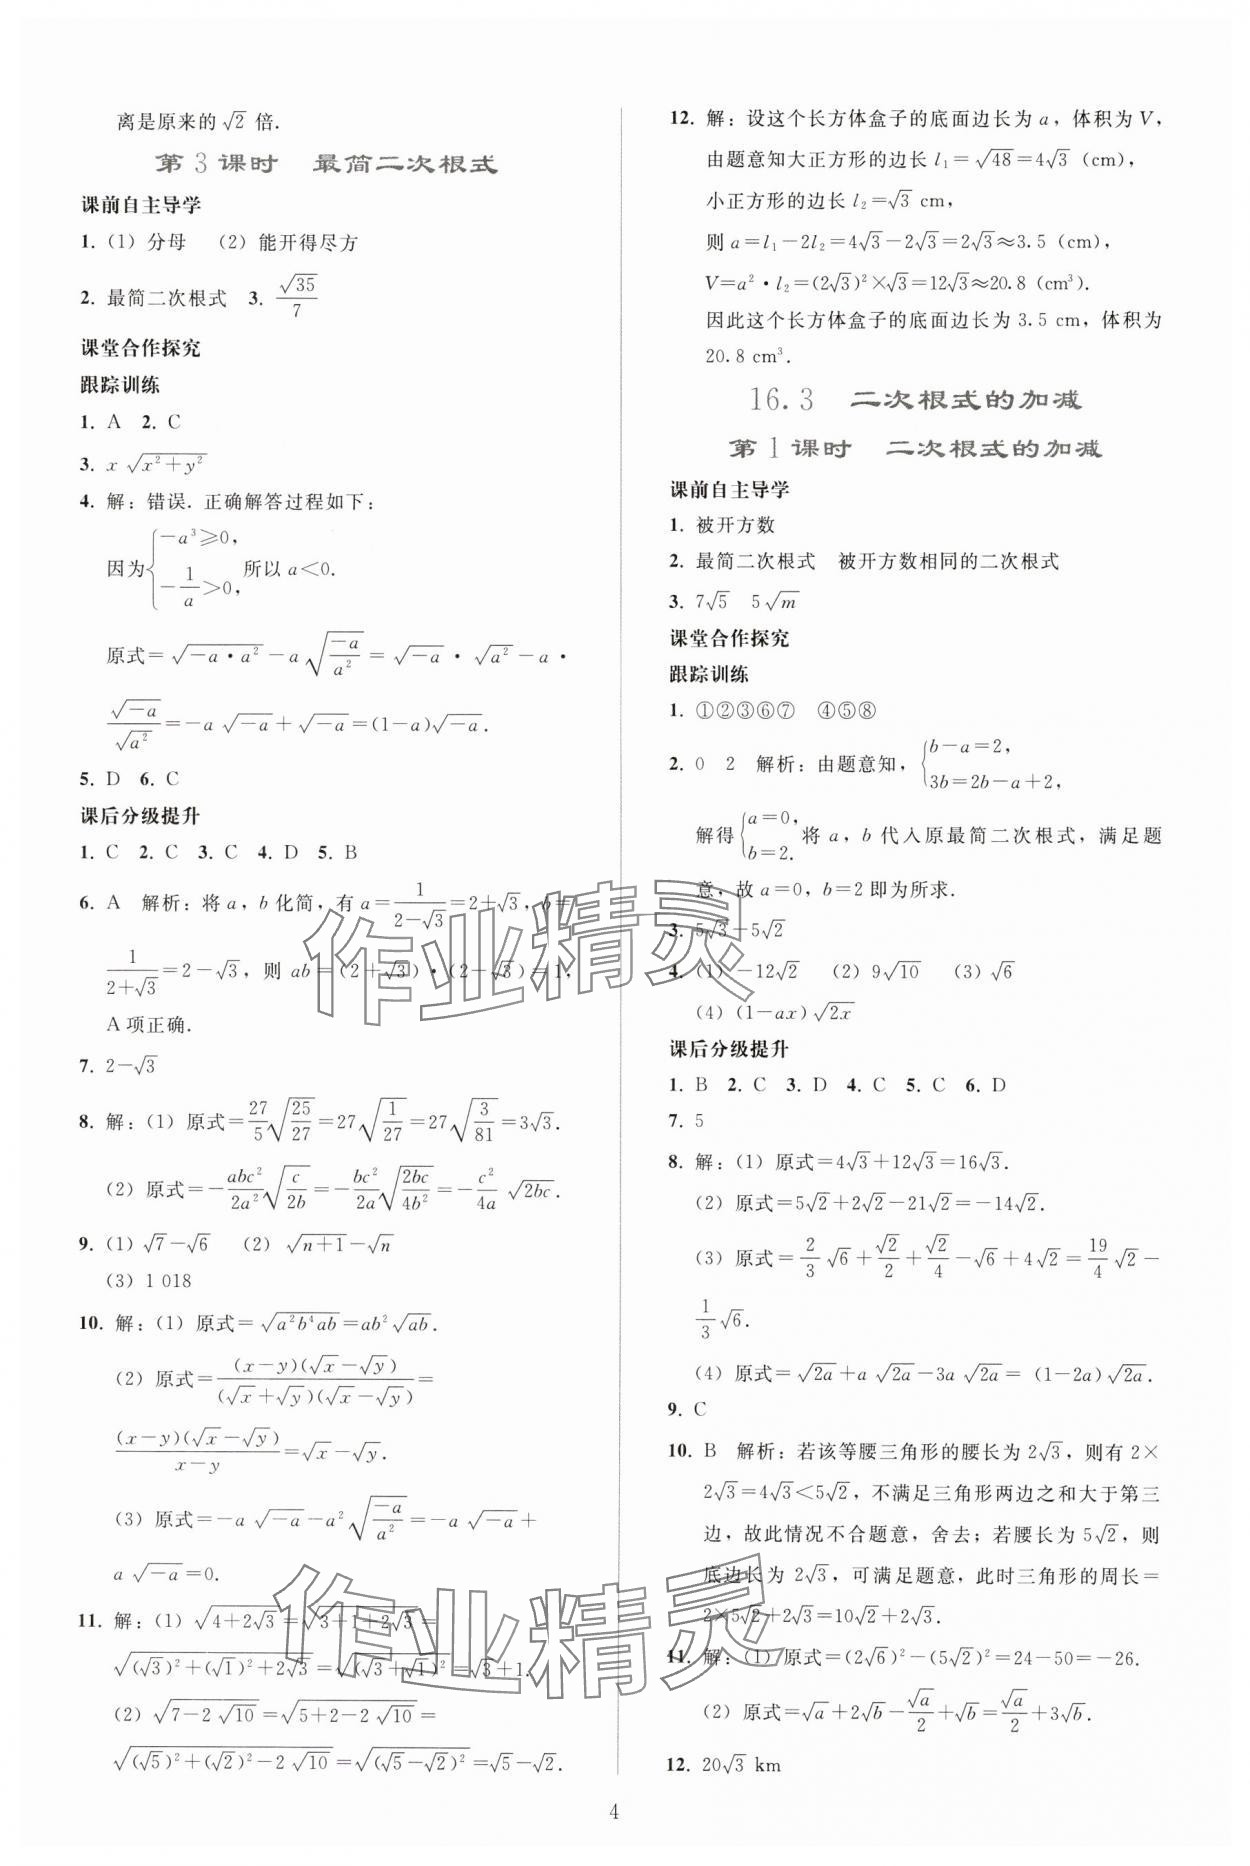 离是原来的√2 倍.
第 3 课时　最简二次根式
课前自主导学
1. (1) 分母　(2) 能开得尽方
2. 最简二次根式　3. √35/7
课堂合作探究
跟踪训练
1. A　2. C
3. x√(x²+y²)
4. 解：错误. 正确解答过程如下：
因为{-a³≥0, -1/a>0, 所以 a<0.
原式=√(-a·a²)-a√(-a/a²)=√(-a)·√(a²)-a·
√(-a)/√(a²)=-a√(-a)+√(-a)=(1-a)√(-a).
5. D　6. C
课后分级提升
1. C　2. C　3. C　4. D　5. B
6. A　解析：将 a，b 化简，有 a=1/(2-√3)=2+√3，b=
1/(2+√3)=2-√3，则 ab=(2+√3)·(2-√3)=1，
A 项正确.
7. 2-√3
8. 解：(1) 原式=27/5√(25/27)=27√(1/27)=27√(3/81)=3√3.
(2) 原式=-abc²/2a²√(c/2b)=-bc²/2a√(2bc/4b²)=-c²/4a√(2bc).
9. (1) √7-√6　(2) √(n+1)-√n
(3) 1 018
10. 解：(1) 原式=√(a²b⁴ab)=ab²√(ab).
(2) 原式=(x-y)(√x-√y)/(√x+√y)(√x-√y)=
(x-y)(√x-√y)/(x-y)=√x-√y.
(3) 原式=-a√(-a)-a²√(-a/a²)=-a√(-a)+
a√(-a)=0.
11. 解：(1) √(4+2√3)=√(3+1+2√3)=
√((√3)²+(√1)²+2√3)=√((√3+√1)²)=√3+1.
(2) √(7-2√10)=√(5+2-2√10)=
√((√5)²+(√2)²-2√10)=√((√5-√2)²)=√5-√2.
12. 解：设这个长方体盒子的底面边长为 a，体积为 V，
由题意知大正方形的边长 l₁=√48=4√3 (cm)，
小正方形的边长 l₂=√3 cm，
则 a=l₁-2l₂=4√3-2√3=2√3≈3.5 (cm)，
V=a²·l₂=(2√3)²×√3=12√3≈20.8 (cm³).
因此这个长方体盒子的底面边长为 3.5 cm，体积为
20.8 cm³.
16.3　二次根式的加减
第 1 课时　二次根式的加减
课前自主导学
1. 被开方数
2. 最简二次根式　被开方数相同的二次根式
3. 7√5　5√m
课堂合作探究
跟踪训练
1. ①②③⑥⑦　④⑤⑧
2. 0　2　解析：由题意知，{b-a=2, 3b=2b-a+2,
解得{a=0, b=2. 将 a，b 代入原最简二次根式，满足题
意，故 a=0，b=2 即为所求.
3. 5√3+5√2
4. (1) -12√2　(2) 9√10　(3) √6
(4) (1-ax)√(2x)
课后分级提升
1. B　2. C　3. D　4. C　5. C　6. D
7. 5
8. 解：(1) 原式=4√3+12√3=16√3.
(2) 原式=5√2+2√2-21√2=-14√2.
(3) 原式=2/3√6+√2/2+√2/4-√6+4√2=19/4√2-
1/3√6.
(4) 原式=√(2a)+a√(2a)-3a√(2a)=(1-2a)√(2a).
9. C
10. B　解析：若该等腰三角形的腰长为 2√3，则有 2×
2√3=4√3<5√2，不满足三角形两边之和大于第三
边，故此情况不合题意，舍去；若腰长为 5√2，则
底边长为 2√3，可满足题意，此时三角形的周长=
2×5√2+2√3=10√2+2√3.
11. 解：(1) 原式=(2√6)²-(5√2)²=24-50=-26.
(2) 原式=√a+2√b-√a/2+√b=√a/2+3√b.
12. 20√3 km
4
作业精灵
作业精灵